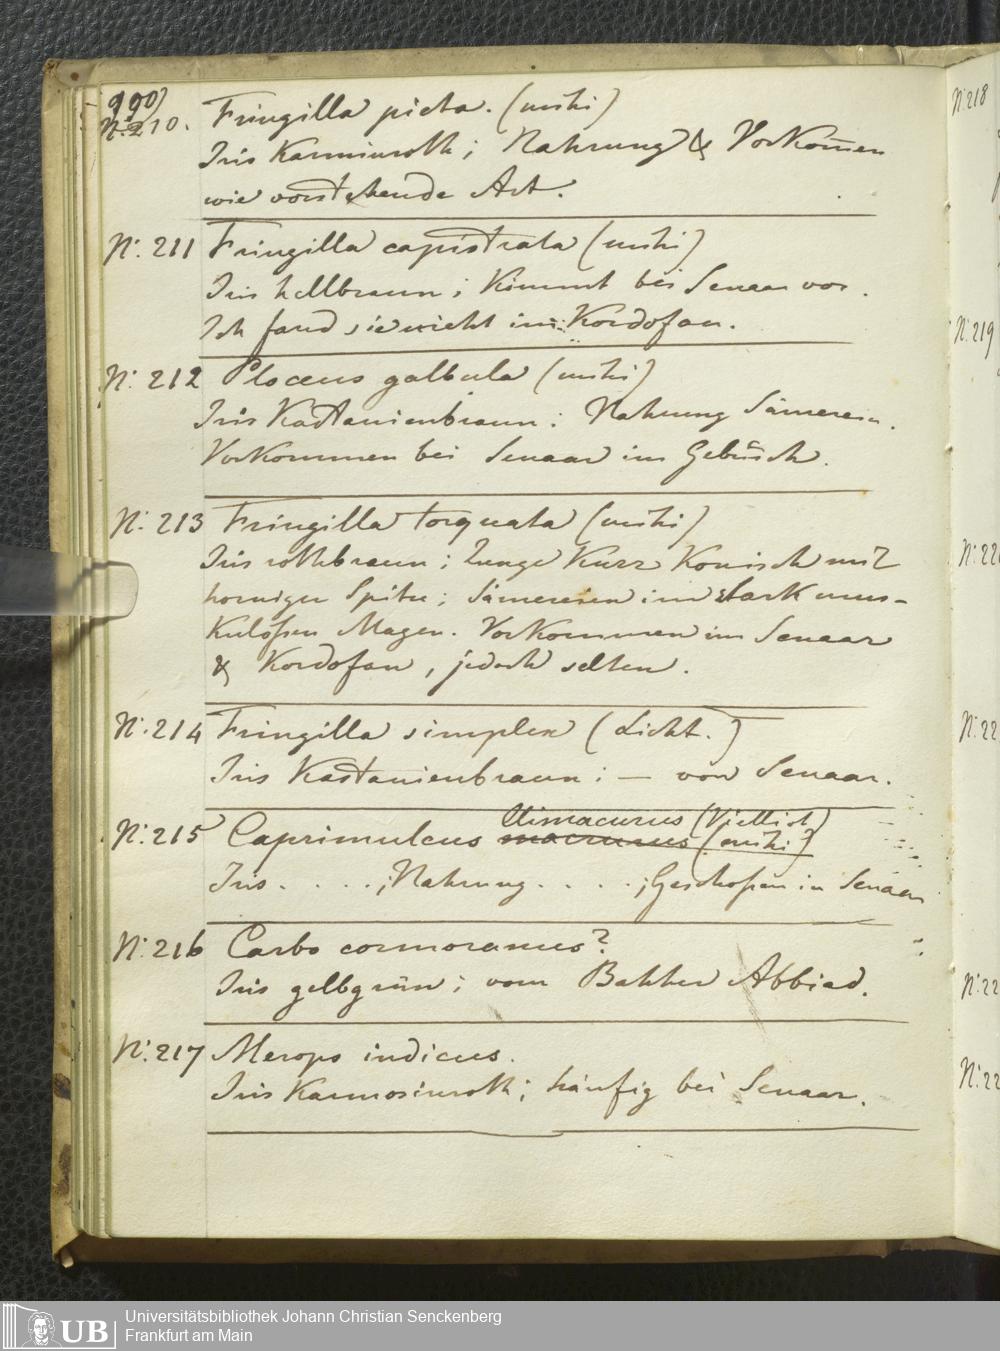 990)
N: 210. Fringilla picta. (mihi)
Iris Karminroth; Nahrung & Vorkom̅en
wie vorstehende Art.
N: 211 Fringilla capistrata (mihi)
Iris hellbraun; Kimmt bei Senaar vor.
Ich fand sie nicht im Kordofan.
N: 212 Ploceus galbula (mihi)
Iris Kastanienbraun: Nahrung Sämerein.
Vorkommen bei Senaar im Gebüsch.
N: 213 Fringilla torquata (mihi)
Iris rothbraun; Zunge Kurz Konisch mit
horniger Spitze; Sämereien im stark mus-
kulösen Magen. Vorkommen im Senaar
& Kordofan, jedoch selten.
N: 214 Fringilla simplex (Licht.)
Iris Kastanienbraun: — von Senaar.
climacurus (Vielliot)
N: 215 Caprimulcus macrurus (mihi?)
Iris . . . . ; Nahrung . . . . ; Geschoßen in Senaar
N: 216 Carbo cormoranus?
Iris gelbgrün; vom Bahher Abbiad.
N: 217 Merops indicus.
Iris Karmosinroth; häufig bei Senaar.
N: 218
N: 219
N: 22
N: 22
N: 22
N: 22
UB
Universitätsbibliothek Johann Christian Senckenberg
Frankfurt am Main